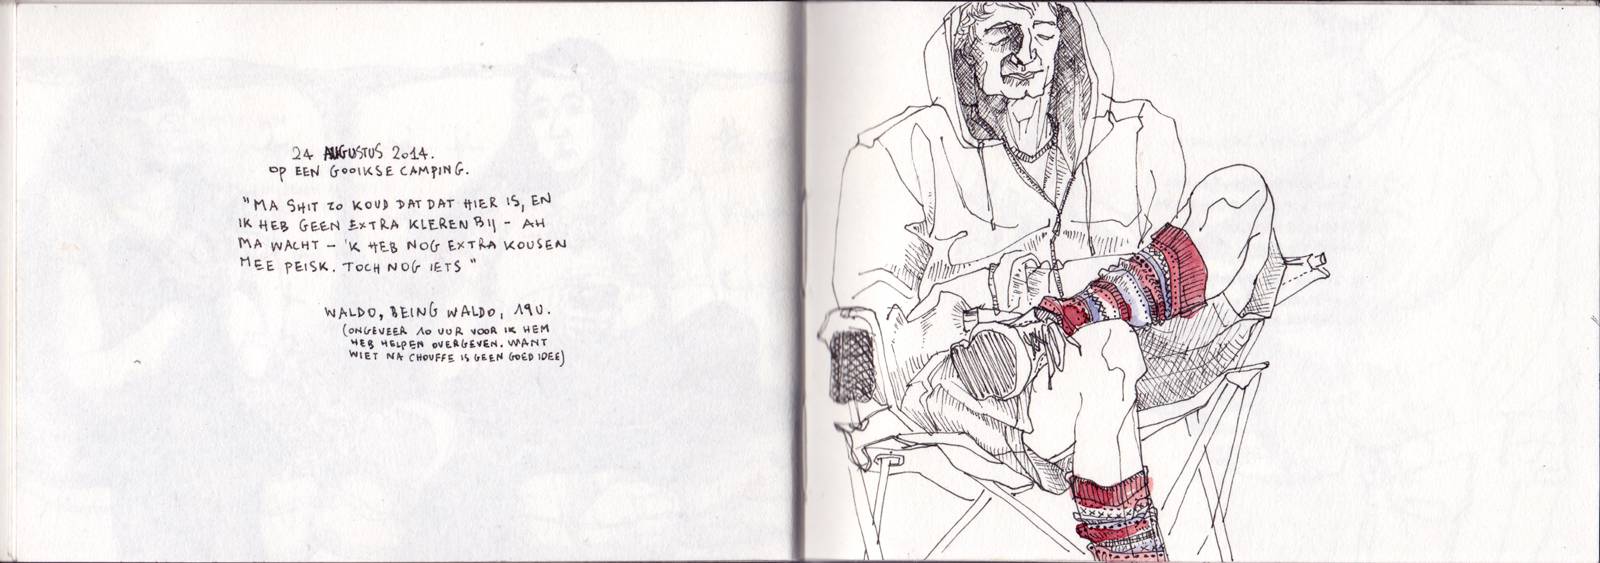 24 AUGUSTUS 2014.
OP EEN GOOIKSE CAMPING.
"MA SHIT ZO KOUD DAT DAT HIER IS, EN
IK HEB GEEN EXTRA KLEREN BIJ - AH
MA WACHT - 'K HEB NOG EXTRA KOUSEN
MEE PEISK. TOCH NOG IETS"
WALDO, BEING WALDO, 19U.
(ONGEVEER 10 UUR VOOR IK HEM
HEB HELPEN OVERGEVEN. WANT
WIET NA CHOUFFE IS GEEN GOED IDEE)